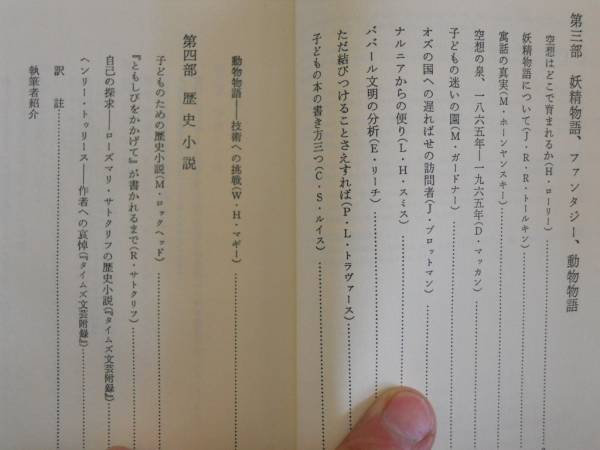 第三部　妖精物語、ファンタジー、動物物語
空想はどこで育まれるか(H・ローリー)
妖精物語について(J・R・R・トールキン)
寓話の真実(M・ホーンヤンスキー)
空想の泉、一八六五年―一九六五年(D・マッカン)
子どもの迷いの園(M・ガードナー)
オズの国への遅ればせの訪問者(J・ブロットマン)
ナルニアからの便り(L・H・スミス)
ババール文明の分析(E・リーチ)
ただ結びつけることさえすれば(P・L・トラヴァース)
子どもの本の書き方三つ(C・S・ルイス)
動物物語――技術への挑戦(W・H・マギー)
第四部　歴史小説
子どものための歴史小説(M・ロックヘッド)
『ともしびをかかげて』が書かれるまで(R・サトクリフ)
自己の探求――ローズマリ・サトクリフの歴史小説(『タイムズ文芸附録』)
ヘンリー・トゥリース――作者への哀悼(『タイムズ文芸附録』)
訳註
執筆者紹介